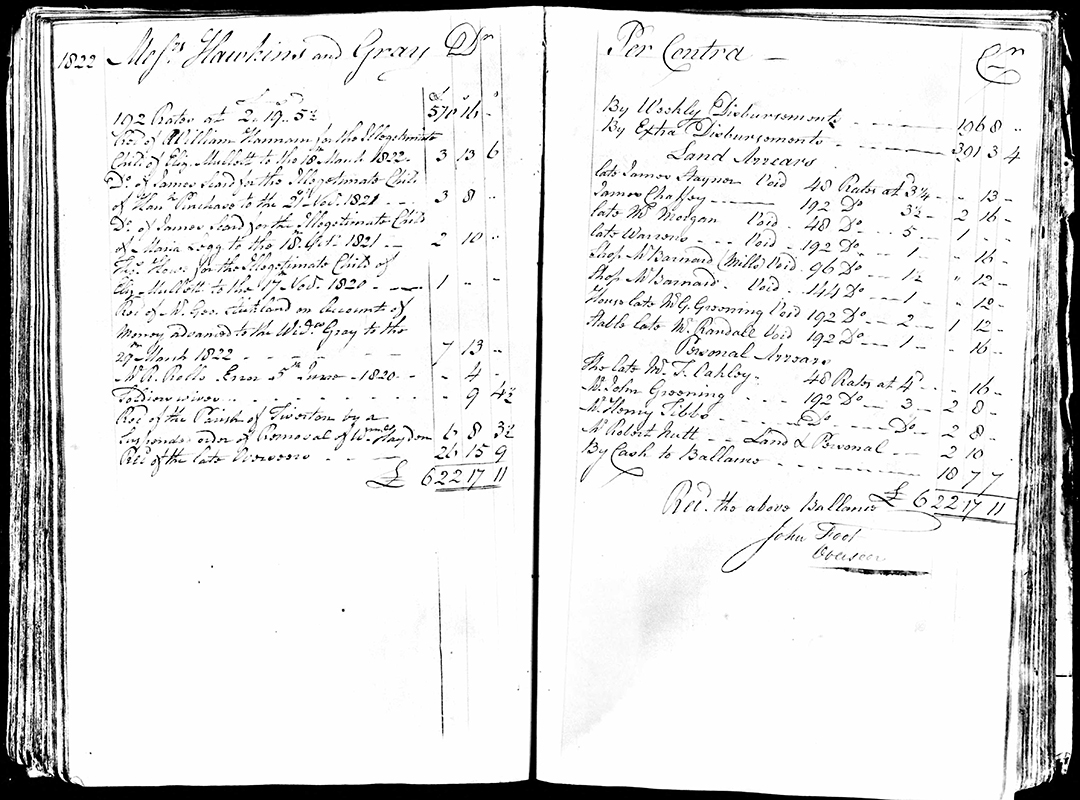 1822 Messrs Hawkins and Gray Dr
192 Rates at 2. 19. 5½ 570 16 "
Rec'd of William Hannam for the Illegetimate
Child of Eliz. Mullett to the 18th March 1822 - 3 13 6
Do. of James Leard for the Illegetimate Child
of Hanh. Purchase to the 21st Novr. 1821 - - - 3 8 "
Do. of James Leard for the Illegetimate Child
of Maria Legg to the 18th 1821 - - 2 10 "
Thos. House for the Illegetimate Child of
Eliz. Mullett to the 17 Novr. 1820 - - - 1 - -
Rec'd of Mr. Geo. Stickland on Account of
Money advanced to the Widw. Gray to the
29th March 1822 - - - - - - 7 13 -
Mr. R. Rolls Error 5th June 1820 - - - 4 -
Soldiers wives - - - - 9 4½
Rec'd of the Parish of Tiverton by a
Suspended order of Removal of Wm. Haydon 6 8 3½
Rec'd of the late Overseers - - - - 26 15 9
£ 622 17 11
Per Contra — Cr
By Weekly Disbursements - - - - - 196 8 "
By Extra Disbursements - - - - - 391 3 4
Land Arrears
late James Stayner Void 48 Rates at 3¼ - - 13 -
James Chaffey - - - 192 Do. 3½ - - 2 16 -
late Mr. Morgan Void - 48 Do. - - 5 - - 1 - -
late Warrens - - - Void - 192 Do. - - 1 - - - 16 -
Shop Mr. Barnard (Mills) Void 96 Do. - - 1½ " 12 -
Shop Mr. Barnard - Void - 144 Do. - - 1 - - " 12 -
House late Mr. G. Groening Void 192 Do. - - 2 - - 1 12 -
Stable late Mr. Randale Void 192 Do. - - 1 - - - 16 -
Personal Arrears
The late Mr. T. Oakley - 48 Rates at 4d. - - - 16 -
Mr. John Groening - - - 192 Do. - - 3 - - 2 8 -
Mr. Henry Tibbs - - Do. - - Do. - - 2 8 -
Mr. Robert Nutt - - Land & Personal - - 2 10 -
By Cash to Ballance - - - - - - - 18 7 7
£ 622 17 11
Rec'd. the above Ballance
John Foot
Overseer